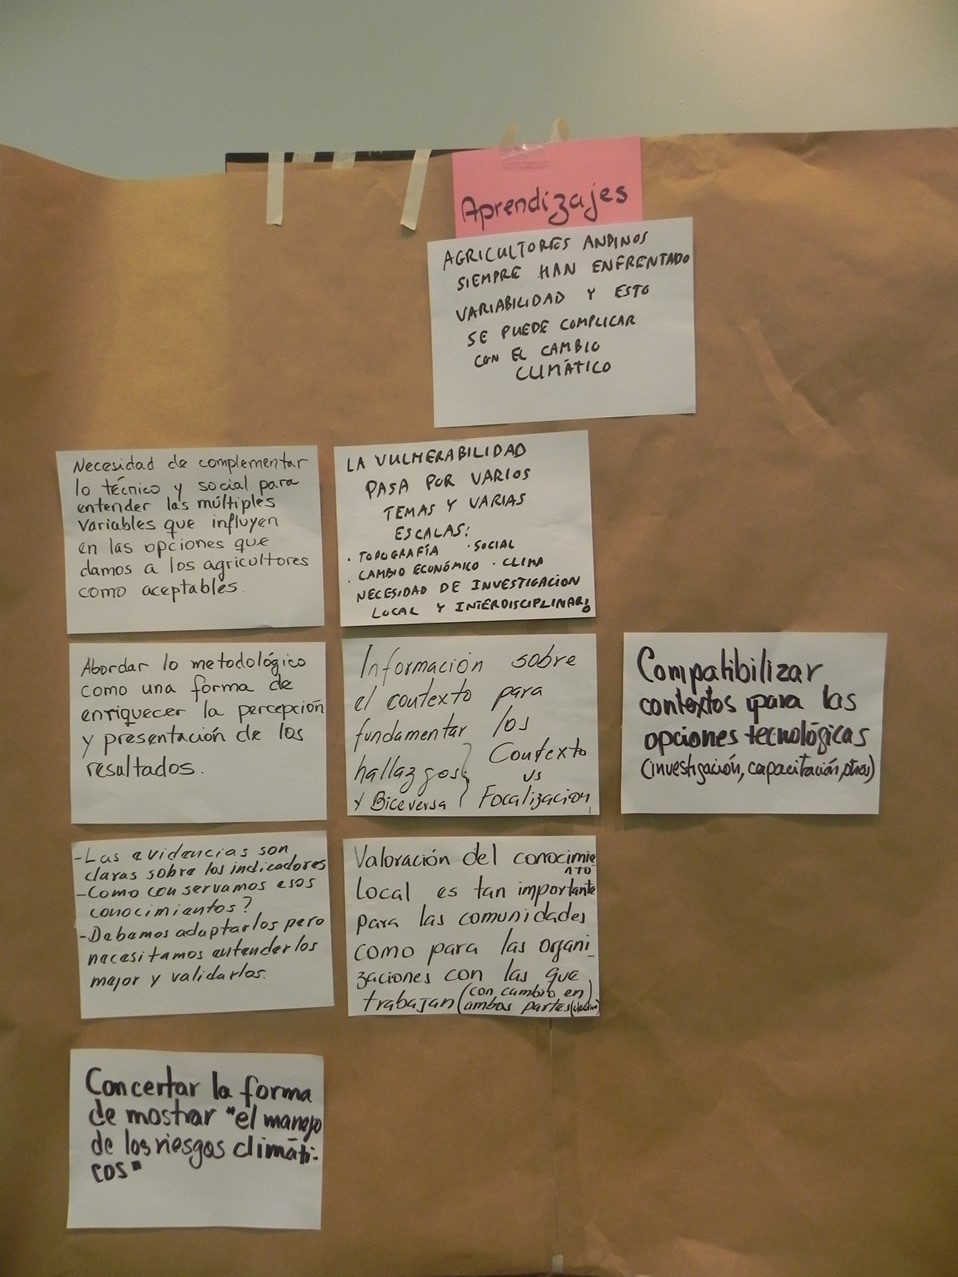 Aprendizajes
AGRICULTORES ANDINOS
SIEMPRE HAN ENFRENTADO
VARIABILIDAD Y ESTO
SE PUEDE COMPLICAR
CON EL CAMBIO
CLIMÁTICO
Necesidad de complementar
lo técnico y social para
entender las múltiples
variables que influyen
en las opciones que
damos a los agricultores
como aceptables.
LA VULNERABILIDAD
PASA POR VARIOS
TEMAS Y VARIAS
ESCALAS:
· TOPOGRAFÍA · SOCIAL
· CAMBIO ECONÓMICO · CLIMA
NECESIDAD DE INVESTIGACION
LOCAL Y INTERDISCIPLINARIO
Abordar lo metodológico
como una forma de
enriquecer la percepción
y presentación de los
resultados.
Información sobre
el contexto para
fundamentar los
hallazgos
y Biceversa
Contexto
vs
Focalización
Compatibilizar
contextos para las
opciones tecnológicas
(investigación, capacitación, otros)
-Las evidencias son
claras sobre los indicadores
-Como conservamos esos
conocimientos?
-Debemos adaptarlos pero
necesitamos entenderlos
mejor y validarlos.
Valoración del conocimie
nto
Local es tan importante
para las comunidades
como para las organi_
zaciones con las que
trabajan (con cambio en
ambos partes
Concertar la forma
de mostrar "el manejo
de los riesgos climáti-
cos"